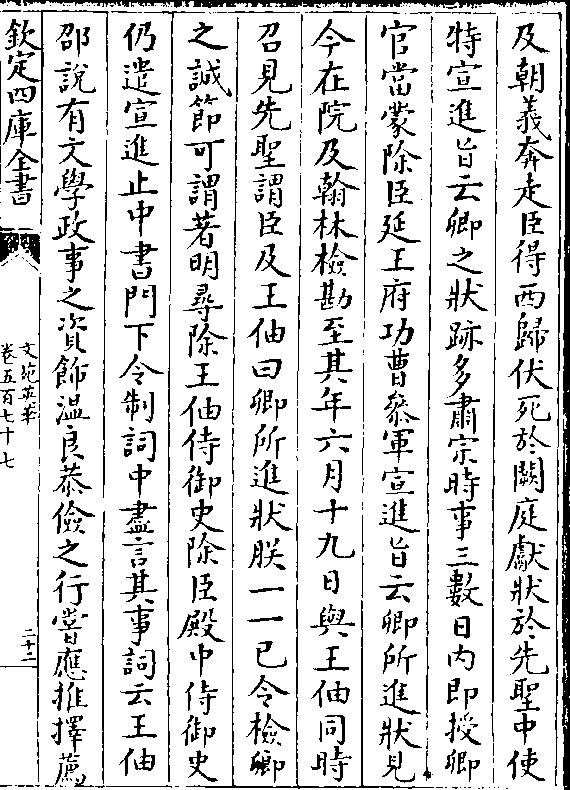 及朝義奔走臣得西歸伏死於闕庭獻狀於先聖中使
特宣進旨云卿之狀跡多肅宗時事三數日內即授卿
官當蒙除臣延王府功曹叅軍宣進旨云卿所進狀見
今在院及翰林檢勘至其年六月十九日與王伷同時
召見先聖謂臣及王伷曰卿所進狀朕一一已令檢卿
之誠節可謂著明尋除王伷侍御史除臣殿中侍御史
仍遣宣進止中書門下令制詞中盡言其事詞云王伷
邵說有文學政事之資飾溫良恭儉之行嘗應推擇薦
欽定四庫全書
文苑英華
卷五百七十七
二十二